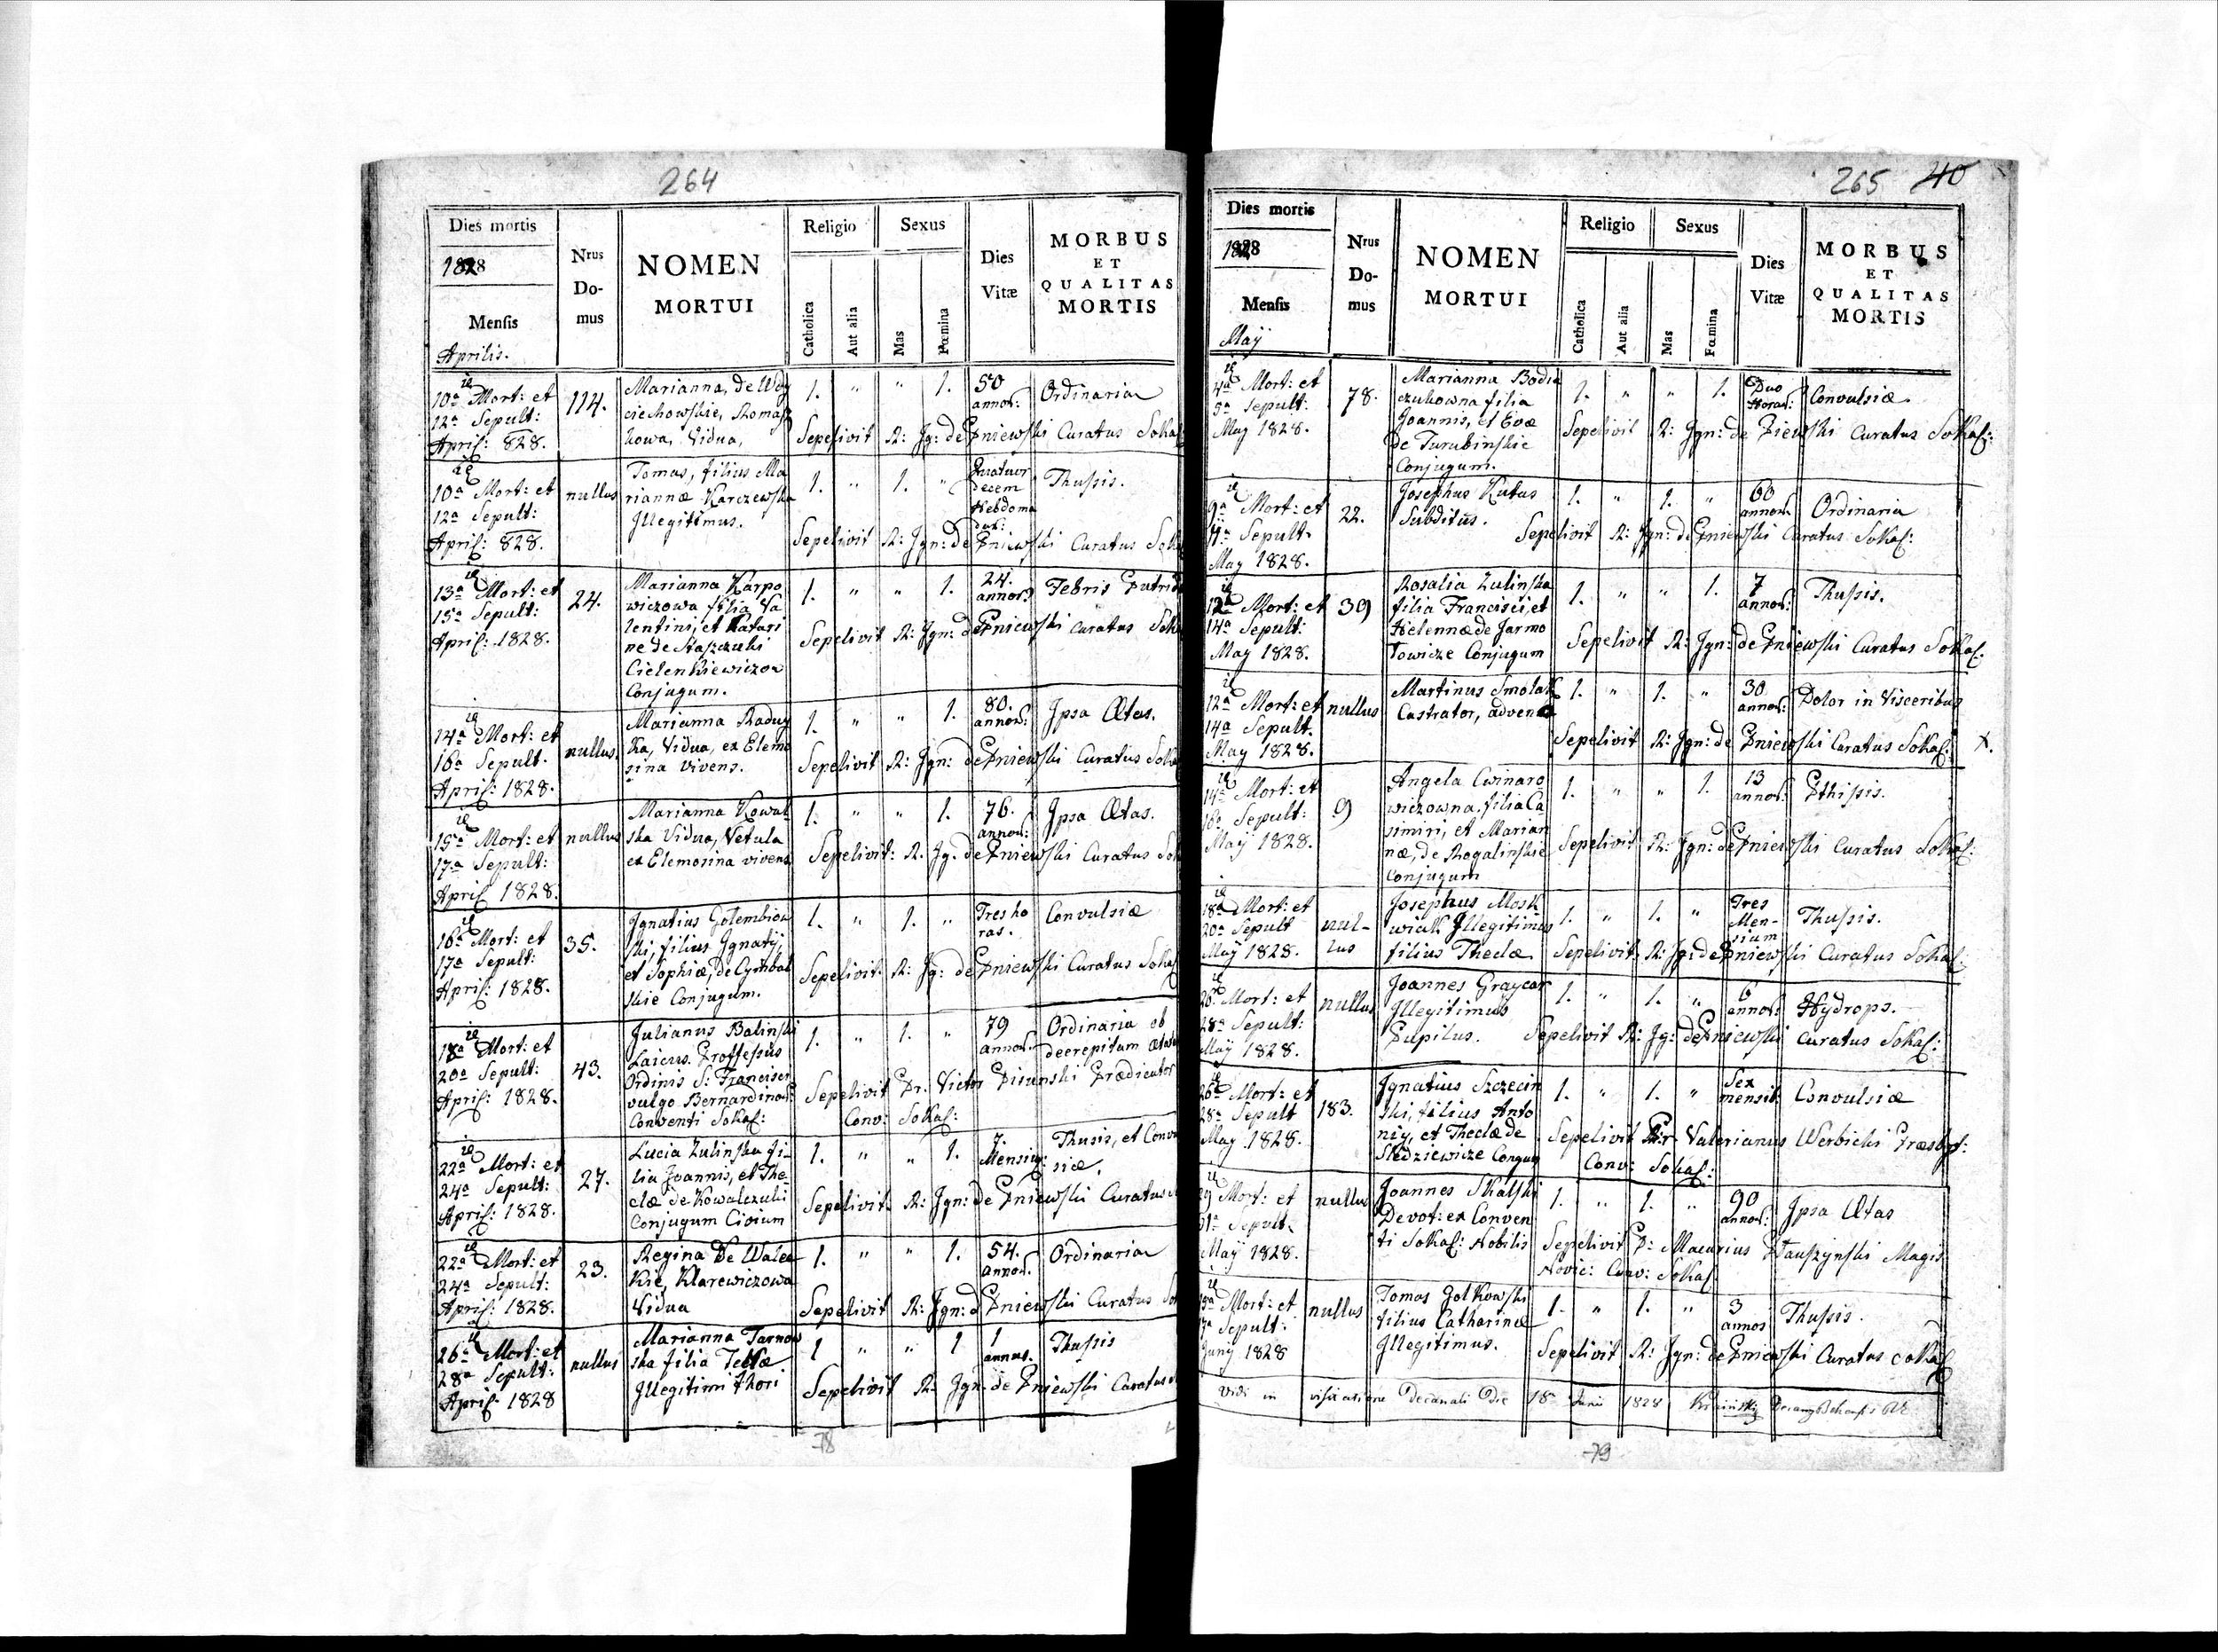 264
Dies mortis
1828
Mensis
Aprilis.
Nrus
Do-
mus
NOMEN
MORTUI
Religio
Catholica
Aut alia
Sexus
Mas
Fœmina
Dies
Vitæ
MORBUS
ET
QUALITAS
MORTIS
10a Mort: et
12a Sepult:
April: 828.
114.
Marianna, de Woy
ciechowskie, Thomasz
kowa, Vidua,
1. " " 1.
50
annor:
Ordinaria
Sepelivit R: Ig: de Pniewski Curatus Sokal
10a Mort: et
12a Sepult:
April: 828.
nullus
Tomas, filius Ma
riannæ Karczewska
Illegitimus.
1. " 1. "
Quatuor
decem
Hebdoma
dar:
Thussis.
Sepelivit R: Ign: de Pniewski Curatus Soka
13a Mort: et
15a Sepult:
April: 1828.
24.
Marianna Karpo
wiczowa filia Va
lentini, et Katari
ne de Staszczuki
Cielenkiewiczow
Conjugum.
1. " " 1.
24.
annor:
Febris Putrid
Sepelivit R: Ign: de Pniewski Curatus Soka
14a Mort: et
16a Sepult.
April: 1828.
nullus.
Marianna Raduy
ka, Vidua, ex Elemo
sina vivens.
1. " " 1.
80.
annor:
Ipsa Ætas.
Sepelivit R: Ign: de Pniewski Curatus Soka
15a Mort: et
17a Sepult:
April 1828.
nullus
Marianna Kowal
ska Vidua, Vetula
ex Elemosina vivens
1. " " 1.
76.
annor:
Ipsa Ætas.
Sepelivit: R. Ig. de Pniewski Curatus Sok
16a Mort: et
17a Sepult:
April: 1828.
35.
Ignatius Golembiow
ski, filius Ignatij,
et Sophiæ, de Cymbal
skie Conjugum.
1. " 1. "
Tres ho
ras.
Convulsiæ
Sepelivit R: Ig: de Pniewski Curatus Sokal
18a Mort: et
20a Sepult:
April: 1828.
43.
Julianus Balinski
Laicus Proffessus
Ordinis S: Francisci
vulgo Bernardinor:
Conventi Sokal:
1. " 1. "
79
annor:
Ordinaria ob
decrepitam ætate
Sepelivit Pr. Victor Picunski Prædicator
Conv: Sokal:
22a Mort: et
24a Sepult:
April: 1828.
27.
Lucia Zulinska fi-
lia Joannis, et The
clæ de Kowalczuki
Conjugum Civium
1. " " 1.
7.
Mensium:
Thusis, et Conv
siæ.
Sepelivit R: Ign: de Pniewski Curatus
22a Mort: et
24a Sepult:
April: 1828.
23.
Regina De Walec
kie, Klarewiczowa
Vidua
1. " " 1.
54.
annor.
Ordinaria
Sepelivit R: Ign: d Pniewski Curatus So
26a Mort: et
28a Sepult:
April 1828
nullus
Marianna Tarnow
ska filia Teklæ
Illegitimi thori
1 " " 1
1
annus.
Thussis
Sepelivit R: Ign: de Pniewski Curatus
78
265 40
Dies mortis
1828
Mensis
May
Nrus
Do-
mus
NOMEN
MORTUI
Religio
Catholica
Aut alia
Sexus
Mas
Fœmina
Dies
Vitæ
MORBUS
ET
QUALITAS
MORTIS
4a Mort: et
5a Sepult:
May 1828.
78.
Marianna Bodia
czukowna filia
Joannis, et Evæ
de Turubinskie
Conjugum.
1. " " 1.
Duo
Horar:
Convulsiæ.
Sepelivit R: Ign: de Pniewski Curatus Sokal:
9a Mort: et
11a Sepult:
May 1828.
22.
Josephus Kutus
Subditus.
1. " 1. "
60
annor.
Ordinaria
Sepelivit R: Ign: de Pniewski Curatus Sokal:
12a Mort: et
14a Sepult:
May 1828.
39
Rosalia Zulinska
filia Francisci, et
Helennæ de Jarmo
towicze Conjugum
1. " " 1.
7
annor:
Thussis.
Sepelivit R: Ign: de Pniewski Curatus Sokal:
12a Mort: et
14a Sepult.
May 1828.
nullus
Martinus Smolak
Castrator, advena
1. " 1. "
30
annor:
Dolor in Visceribus
Sepelivit R: Ign: de Pniewski Curatus Sokal: X.
14a Mort: et
16a Sepult:
May 1828.
9
Angela Cwinaro
wiczowna, filia Ca
simiri, et Marian
næ, de Rogalinskie
Conjugum
1. " " 1.
13
annor:
Pthisis.
Sepelivit R: Ign: de Pniewski Curatus Sokal:
18a Mort: et
20a Sepult
May 1828.
nul-
lus
Josephus Mosk
wiak Illegitimus
filius Theclæ
1. " 1. "
Tres
Men-
sium
Thussis.
Sepelivit R: Ig: de Pniewski Curatus Sokal:
26a Mort: et
28a Sepult:
May 1828.
nullus
Joannes Graycar
Illegitimus
Pupilus.
1. " 1. "
6
annor:
Hydrops.
Sepelivit R: Ig: de Pniewski Curatus Sokal:
26a Mort: et
28a Sepult
May 1828.
183.
Ignatius Szczecin
ski, filius Anto
nij, et Theclæ de
Sledziewicze Conjug
1. " 1. "
Sex
mensib:
Convulsiæ
Sepelivit Pr: Valerianus Werbicki Præsbyt:
Conv: Sokal:
29 Mort: et
31a Sepult:
May 1828.
nullus
Joannes Skalski
Devot: ex Conven
ti Sokal: Nobilis
1. " 1. "
90
annor:
Ipsa Ætas
Sepelivit P: Macarius Hauszynski Magis
Novic: Conv: Sokal
Mort: et
Sepult:
Juny 1828
nullus
Tomas Golkowski
filius Catharinæ
Illegitimus.
1. " 1. "
3
annos
Thussis.
Sepelivit R: Ign: de Pniewski Curatus Sokal
Vidi in visitatione Decanali Die 18 Junii 1828
79